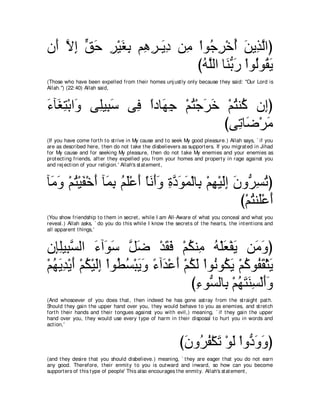 (الَّذِينَ أُخْرِجُواْ مِن دِيَـرِهِم بِغَيْرِ حَقٍّ إِلاَّ أَن
يَقُولُواْ رَبُّنَا اللَّهُ)
(Those who have been expelled from their homes unjustly only because they said: "Our Lord is Allah.") (22:40) Allah said,
(إِن كُنتُمْ خَرَجْتُمْ جِهَاداً فِى سَبِيلِى وَابْتِغَآءَ
مَرْضَاتِى)
(If you have come forth to strive in My cause and to seek My good pleasure.) Allah says, `if you
are as described here, then do not take the disbelievers as supporters. If you migrated in Jihad
for My cause and for seeking My pleasure, then do not take My enemies and your enemies as
protecting friends, after they expelled you from your homes and property in rage against you
and rejection of your religion.' Allah's statement,
(تُسِرُّونَ إِلَيْهِمْ بِالْمَوَدَّةِ وَأَنَاْ أَعْلَمُ بِمَآ أَخْفَيْتُمْ وَمَآ
أَعْلَنتُمْ)
(You show friendship to them in secret, while I am All-Aware of what you conceal and what you
reveal.) Allah asks, `do you do this while I know the secrets of the hearts, the intentions and
all apparent things,'
(وَمَن يَفْعَلْهُ مِنكُمْ فَقَدْ ضَلَّ سَوَآءَ السَّبِيلِإِن
يَثْقَفُوكُمْ يَكُونُواْ لَكُمْ أَعْدَآءً وَيَبْسُطُواْ إِلَيْكُمْ أَيْدِيَهُمْ
وَأَلْسِنَتَهُمْ بِالسُّوءِ)
(And whosoever of you does that, then indeed he has gone astray from the straight path.
Should they gain the upper hand over you, they would behave to you as enemies, and stretch
forth their hands and their tongues against you with evil,) meaning, `if they gain the upper
hand over you, they would use every type of harm in their disposal to hurt you in words and
action,'
(وَوَدُّواْ لَوْ تَكْفُرُونَ)
(and they desire that you should disbelieve.) meaning, `they are eager that you do not earn
any good. Therefore, their enmity to you is outward and inward, so how can you become
supporters of this type of people' This also encourages the enmity. Allah's statement,